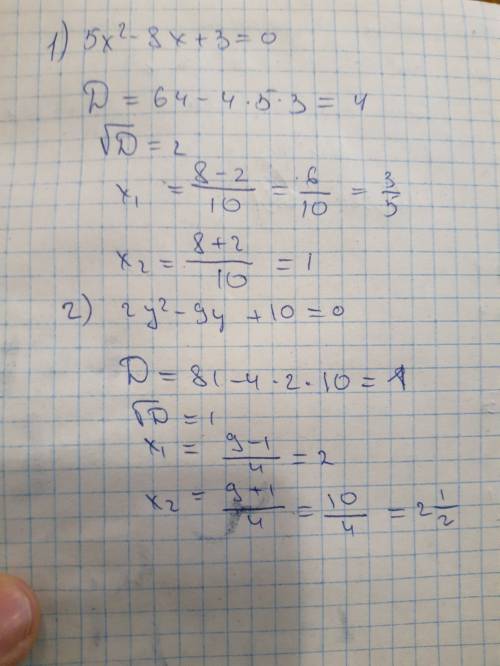 1) 5x² - 8x + 3 = 0
D = 64 - 4 · 5 · 3 = 4
√D = 2
x₁ = (8 - 2)/10 = 6/10 = 3/5
x₂ = (8 + 2)/10 = 1
2) 2y² - 9y + 10 = 0
D = 81 - 4 · 2 · 10 = 1
√D = 1
x₁ = (9 - 1)/4 = 2
x₂ = (9 + 1)/4 = 10/4 = 2 1/2